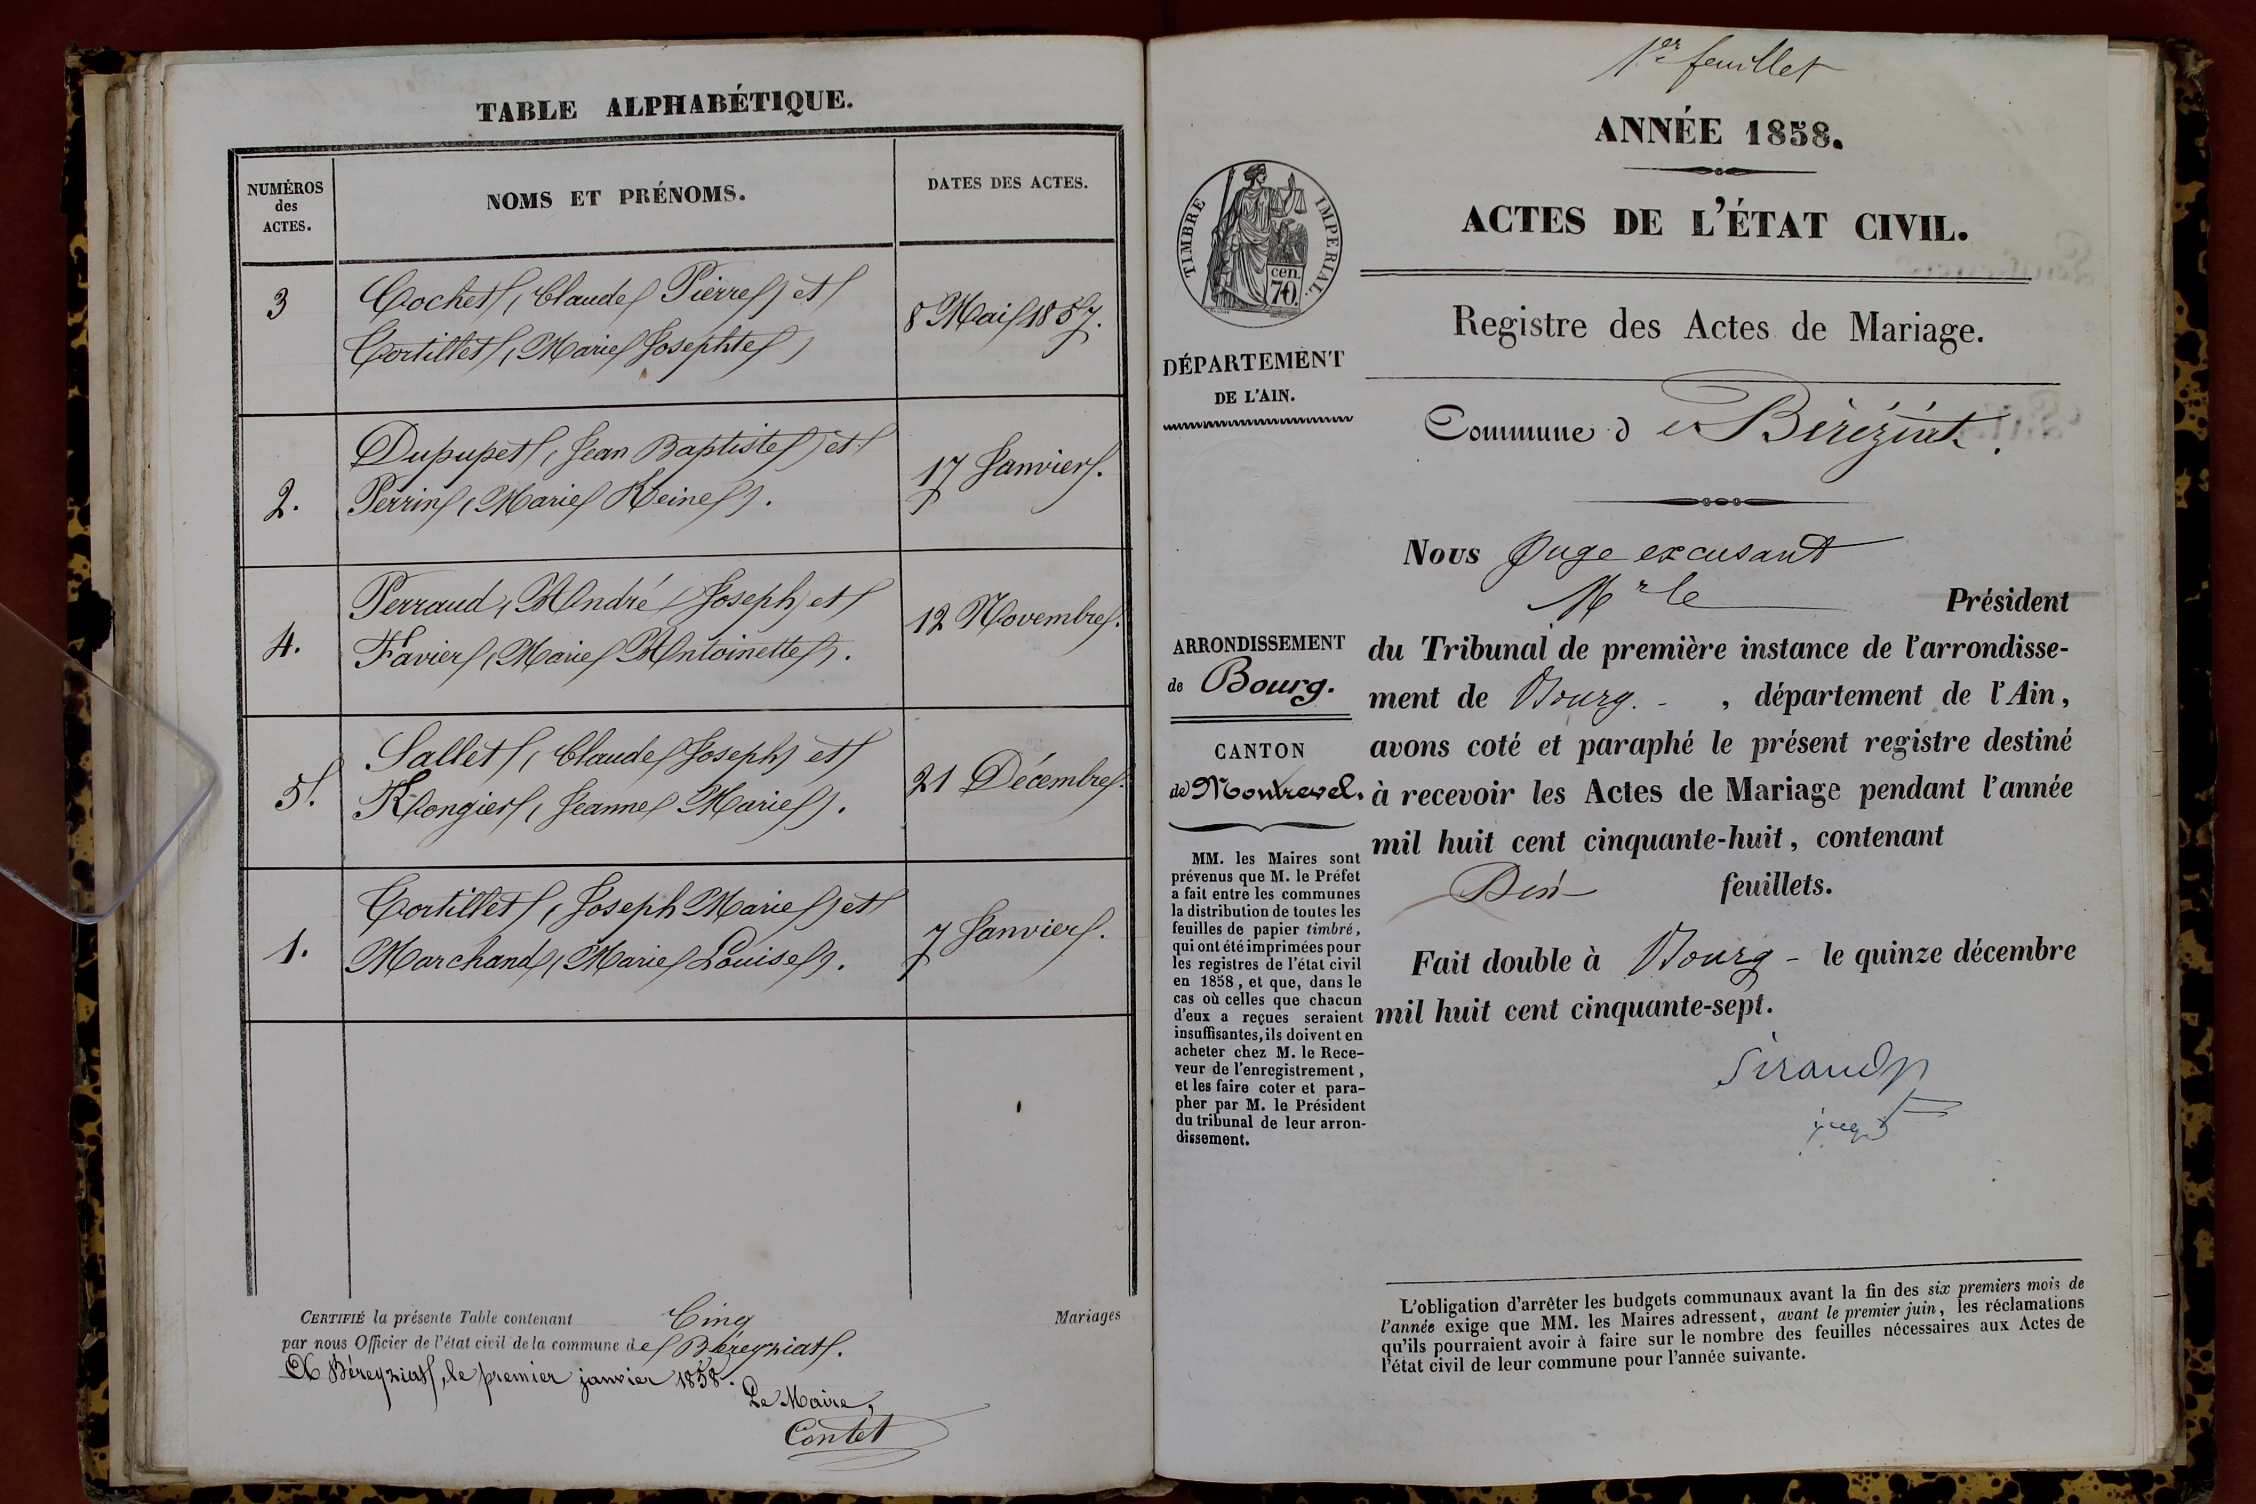 TABLE ALPHABÉTIQUE.
NUMÉROS
des
ACTES.
NOMS ET PRÉNOMS.
DATES DES ACTES.
3
Cochet, (Claude Pierre) et
Cortillet, (Marie Josephte)
8 Mai 1857.
2.
Dupupet, (Jean Baptiste) et
Perrin, (Marie Reine).
17 Janvier.
4.
Perraud, (André Joseph) et
Favier, (Marie Antoinette).
12 Novembre.
5.
Sallet, (Claude Joseph) et
Rongier, (Jeanne Marie).
21 Décembre.
1.
Cortillet, (Joseph Marie) et
Marchand, (Marie Louise).
7 Janvier.
CERTIFIÉ la présente Table contenant Cinq Mariages
par nous Officier de l'état civil de la commune de Béreyziat.
A Béreyziat, le premier janvier 1858.
Le Maire,
Contet
1er feuillet
ANNÉE 1858.
ACTES DE L'ÉTAT CIVIL.
Registre des Actes de Mariage.
TIMBRE IMPERIAL.
cen.
70.
DÉPARTEMENT
DE L'AIN.
Commune de Béréziat.
Nous Juge excusant
Mr le Président
du Tribunal de première instance de l'arrondisse-
ment de Bourg. - , département de l'Ain,
avons coté et paraphé le présent registre destiné
à recevoir les Actes de Mariage pendant l'année
mil huit cent cinquante-huit, contenant
feuillets.
Fait double à Bourg - le quinze décembre
mil huit cent cinquante-sept.
juge
ARRONDISSEMENT
de Bourg.
CANTON
de Montrevel.
MM. les Maires sont
prévenus que M. le Préfet
a fait entre les communes
la distribution de toutes les
feuilles de papier timbré,
qui ont été imprimées pour
les registres de l'état civil
en 1858, et que, dans le
cas où celles que chacun
d'eux a reçues seraient
insuffisantes, ils doivent en
acheter chez M. le Rece-
veur de l'enregistrement,
et les faire coter et para-
pher par M. le Président
du tribunal de leur arron-
dissement.
L'obligation d'arrêter les budgets communaux avant la fin des six premiers mois de
l'année exige que MM. les Maires adressent, avant le premier juin, les réclamations
qu'ils pourraient avoir à faire sur le nombre des feuilles nécessaires aux Actes de
l'état civil de leur commune pour l'année suivante.